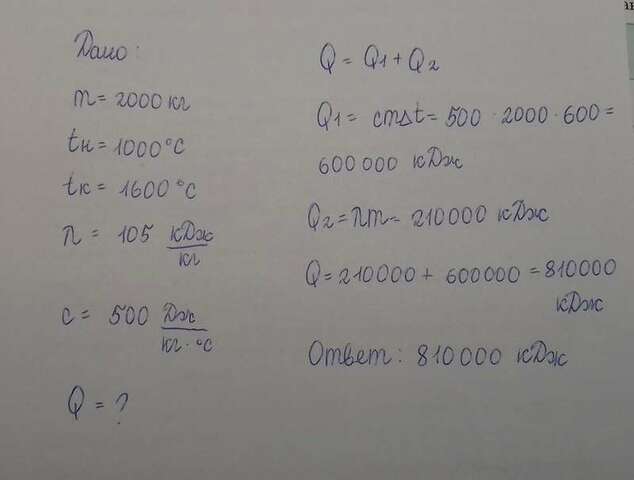 Дано:
m = 2000 кг
tн = 1000 °C
tк = 1600 °C
λ = 105 кДж
кг
c = 500 Дж
кг · °C
Q = ?
Q = Q1 + Q2
Q1 = cmΔt = 500 · 2000 · 600 =
600 000 кДж
Q2 = λm = 210000 кДж
Q = 210000 + 600000 = 810000
кДж
Ответ: 810000 кДж